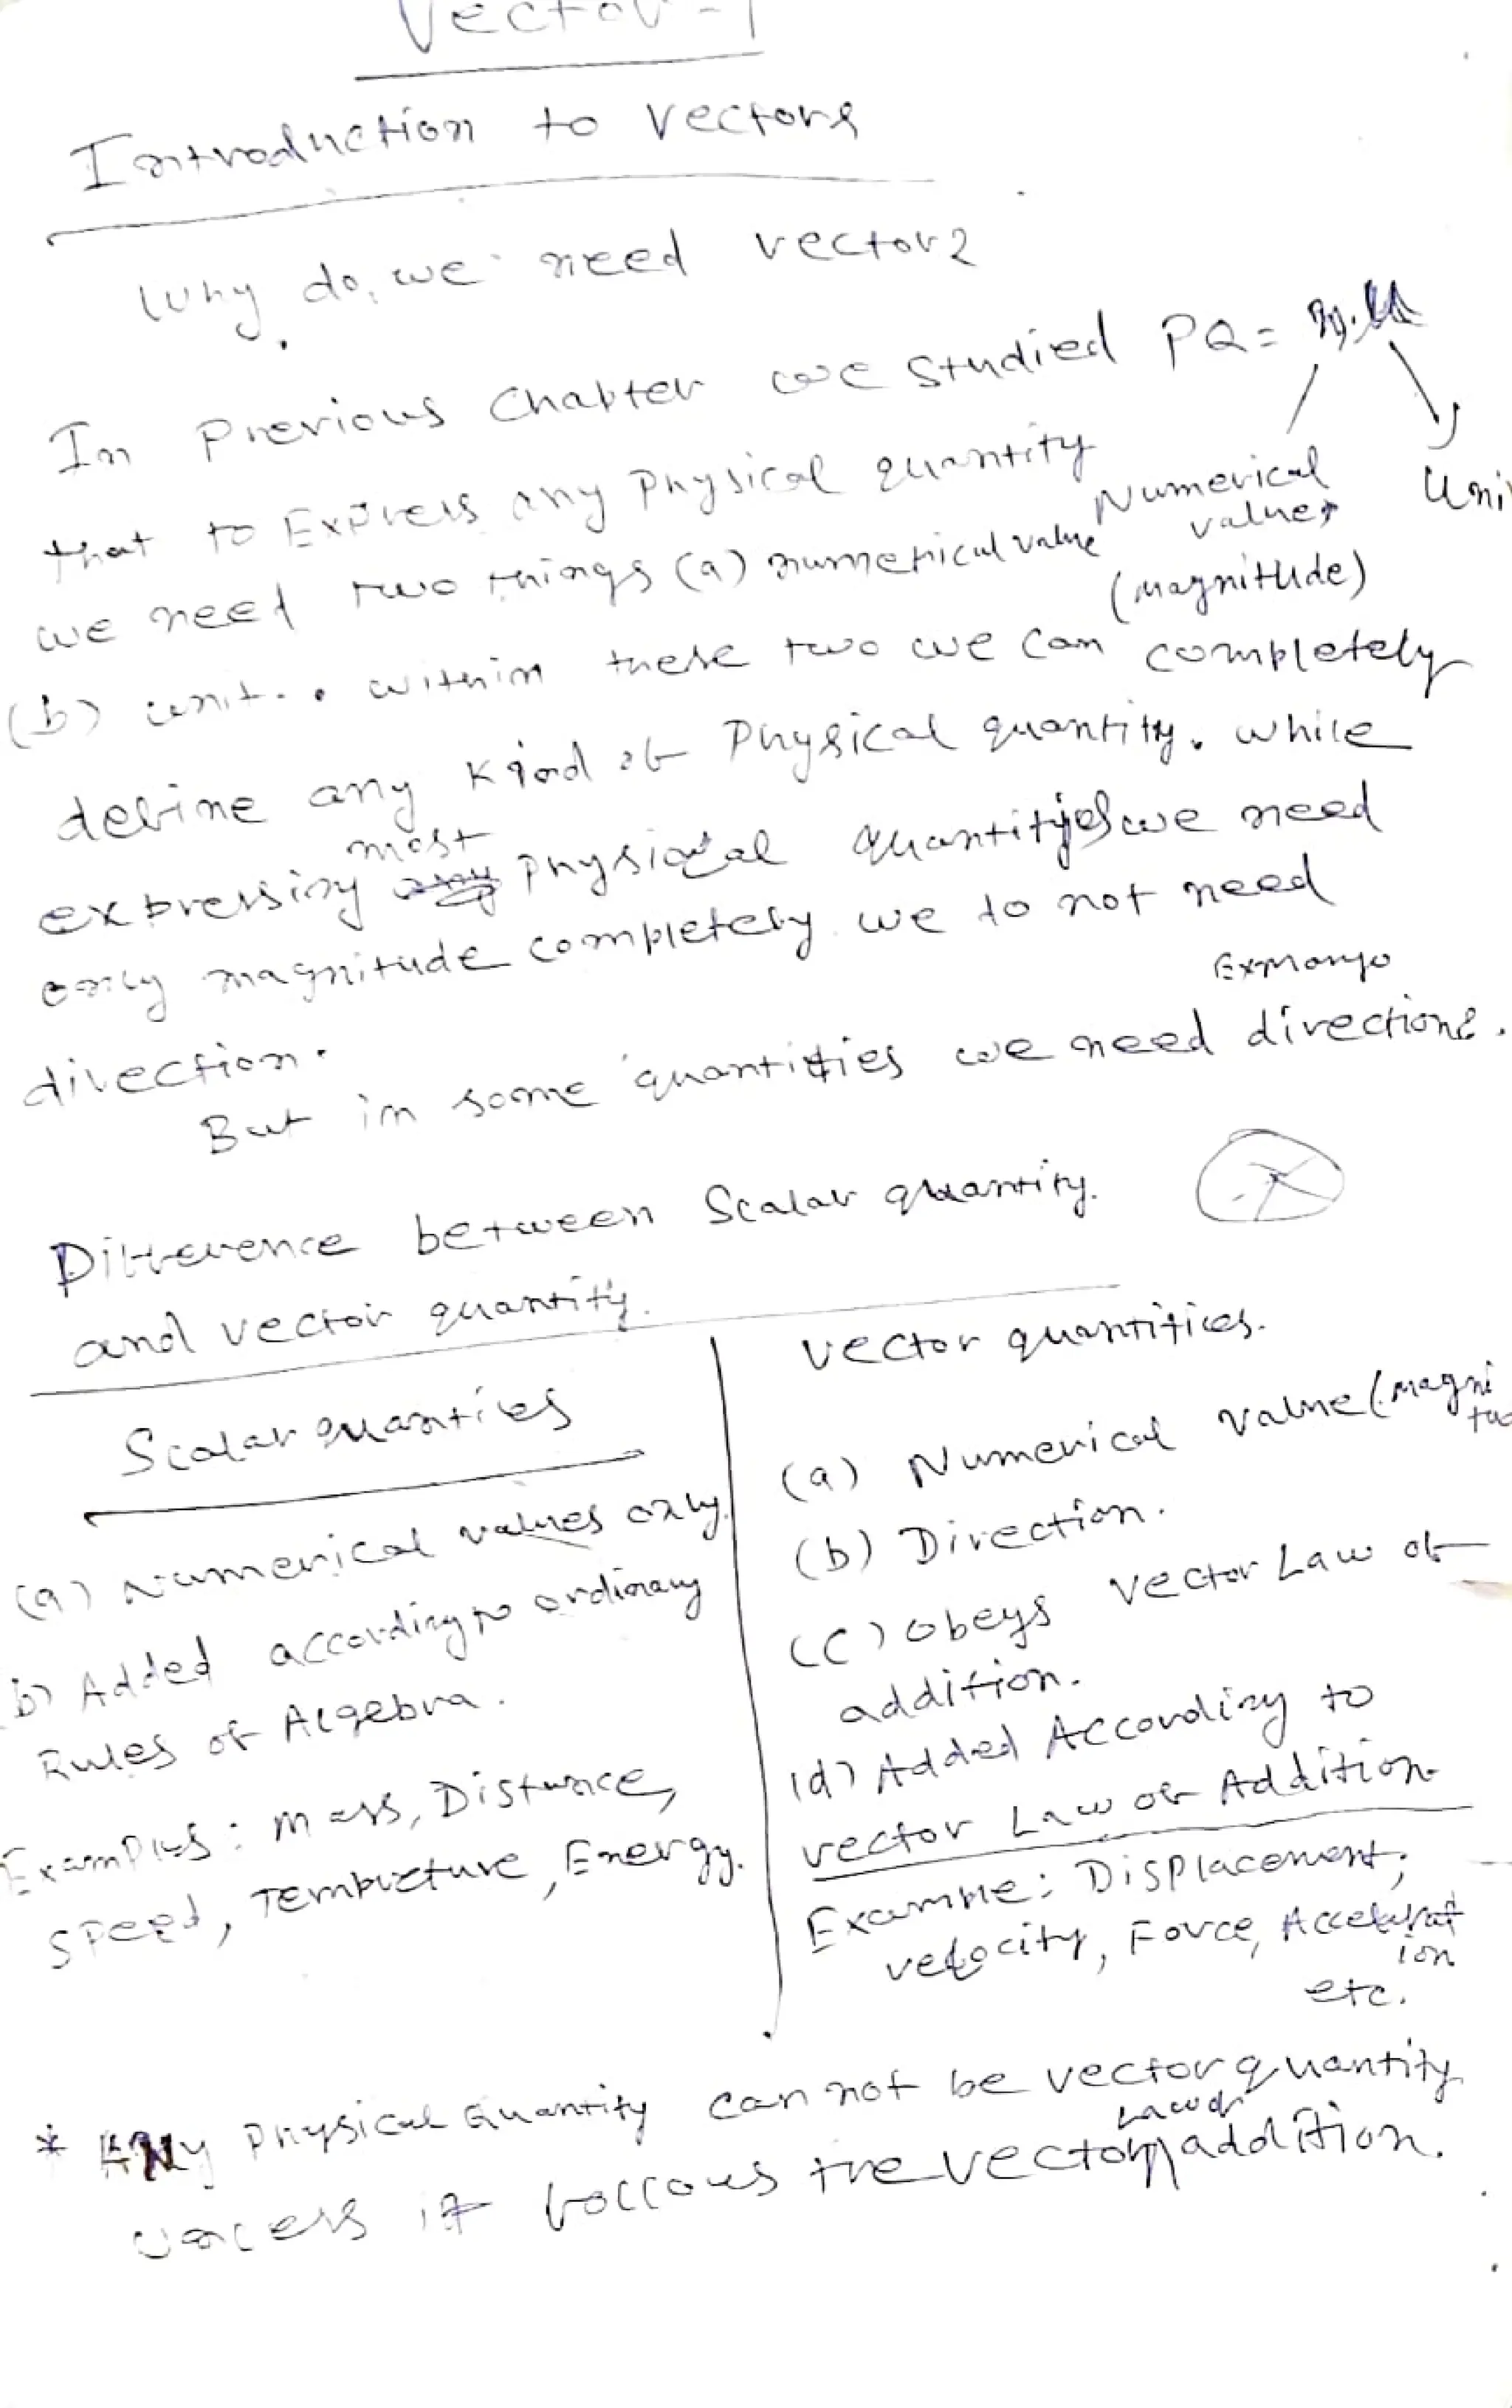 Vector-1
Introduction to vectors
Why do we need vector?
In Previous Chapter we studied PQ = n.u
that to Express any Physical quantity
Numerical value
(magnitude)
Uni
we need two things (a) numerical value
(b) unit. within these two we can completely
define any kind of Physical quantity. while
expressing most physical quantities we need
only magnitude completely we do not need
direction.
But in some quantities we need directions.
Difference between Scalar quantity.
and vector quantity.
Scalar quanties
(a) Numerical values only.
b) Added according to ordinary
Rules of Algebra.
Examples: mass, Distance,
Speed, Temprature, Energy.
vector quantities.
(a) Numerical value (magni
tud
(b) Direction.
(C) Obeys vector Law of
addition.
(d) Added According to
vector Law of Addition
Example: Displacement,
velocity, Force, Accelerat
ion
etc.
* ANy Physical Quantity can not be vector quantity
unless it follows the vector Law of addition.